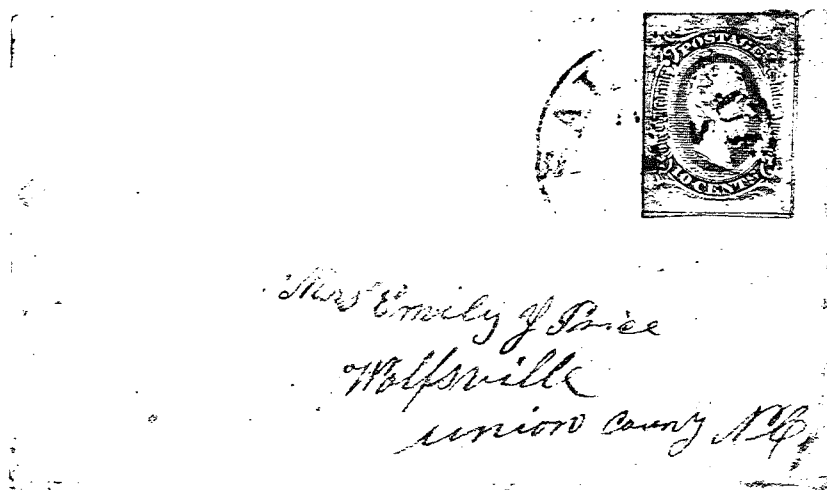 POSTAGE
10 CENTS
Mrs Emily J Price
Wolfsville
union couny NC